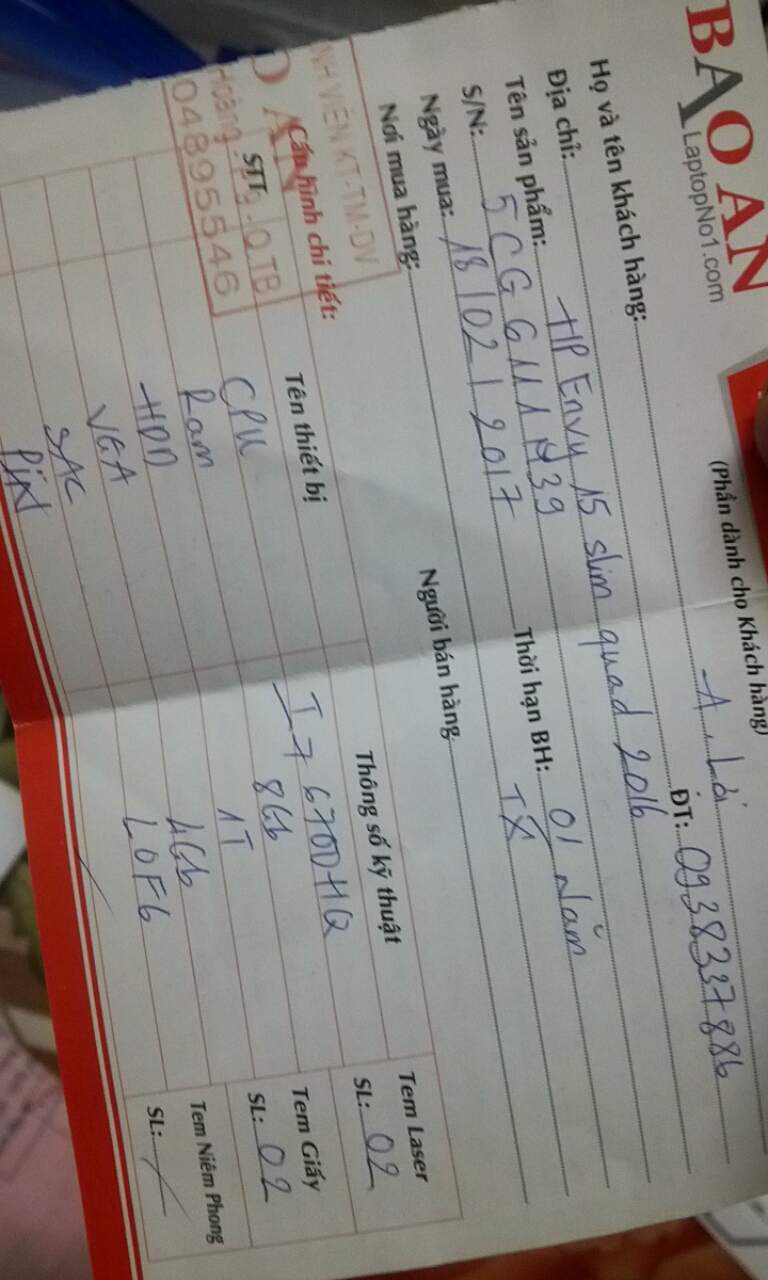 BAO AN
LaptopNo1.com
(Phần dành cho Khách hàng)
Họ và tên khách hàng: A. Lợi
Địa chỉ: ĐT: 0938337886
Tên sản phẩm: HP Envy 15 slim quad 2016
S/N: 5CG6111939 Thời hạn BH: 01 Năm
Ngày mua: 18/02/2017 TX
Nơi mua hàng: Người bán hàng
NH VIÊN KT-TM-DV
O AN
Hoàng Q.TB
04895546
Cấu hình chi tiết:
STT Tên thiết bị Thông số kỹ thuật
CPU I7 6700HQ
Ram 8Gb
HDD 1T
VGA 4Gb
SAC LOF6
PiN
Tem Laser
SL: 02
Tem Giấy
SL: 02
Tem Niêm Phong
SL: